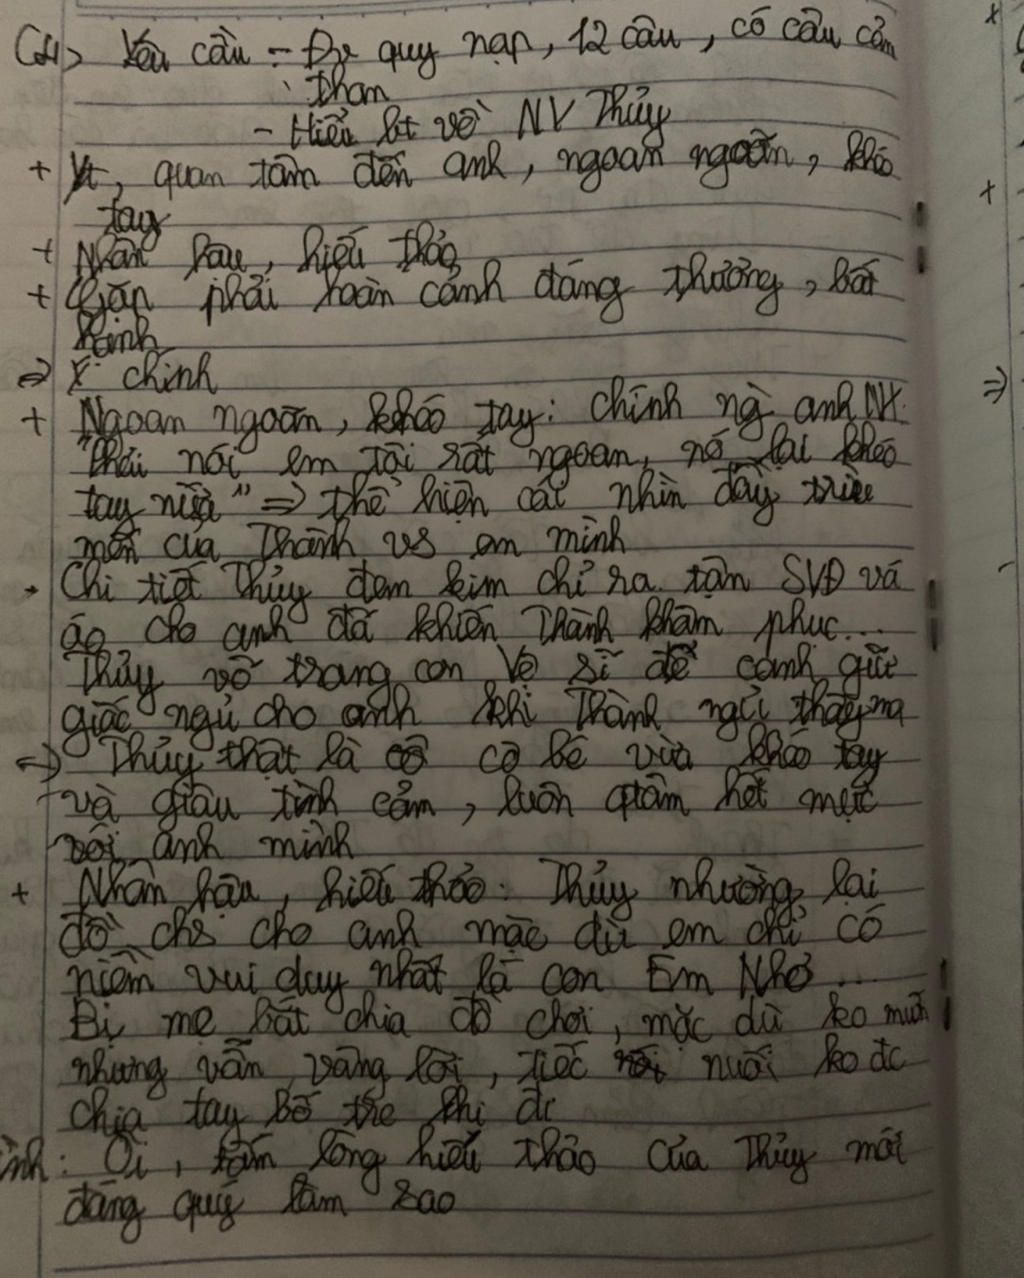 C4> Yêu cầu - Đv quy nạp, 12 câu, có câu cảm
: than
- Hiểu bt về NV Thủy
+ Yt, quan tâm đến anh, ngoan ngoãn, khéo
tay
+ Nhân hậu, hiếu thảo
+ Gặp phải hoàn cảnh đáng thương, bất
hạnh
=> chính
+ Ngoan ngoãn, khéo tay: chính ng anh NX
phải nói em tôi rất ngoan, nó lại khéo
tay nữa" => thể hiện cái nhìn đầy trìu
mến của Thành vs em mình
. Chi tiết Thủy đem kim chỉ ra tận SVĐ vá
áo cho anh đã khiến Thành khâm phục...
Thủy võ trang con Vệ Sĩ để canh giữ
giấc ngủ cho anh khi Thành ngủ thấy ma
=> Thủy thật là cô bé vừa khéo tay
và giàu tình cảm, luôn qtâm hết mực
với anh mình
+ Nhân hậu, hiếu thảo: Thủy nhường lại
đồ chs cho anh mặc dù em chỉ có
niềm vui duy nhất là con Em Nhỏ...
Bị mẹ bắt chia đồ chơi, mặc dù ko muốn
nhưng vẫn vâng lời, tiếc nuối ko đc
chia tay bố trc khi đi
: Ôi, tấm lòng hiếu thảo của Thủy mới
đáng quý làm sao